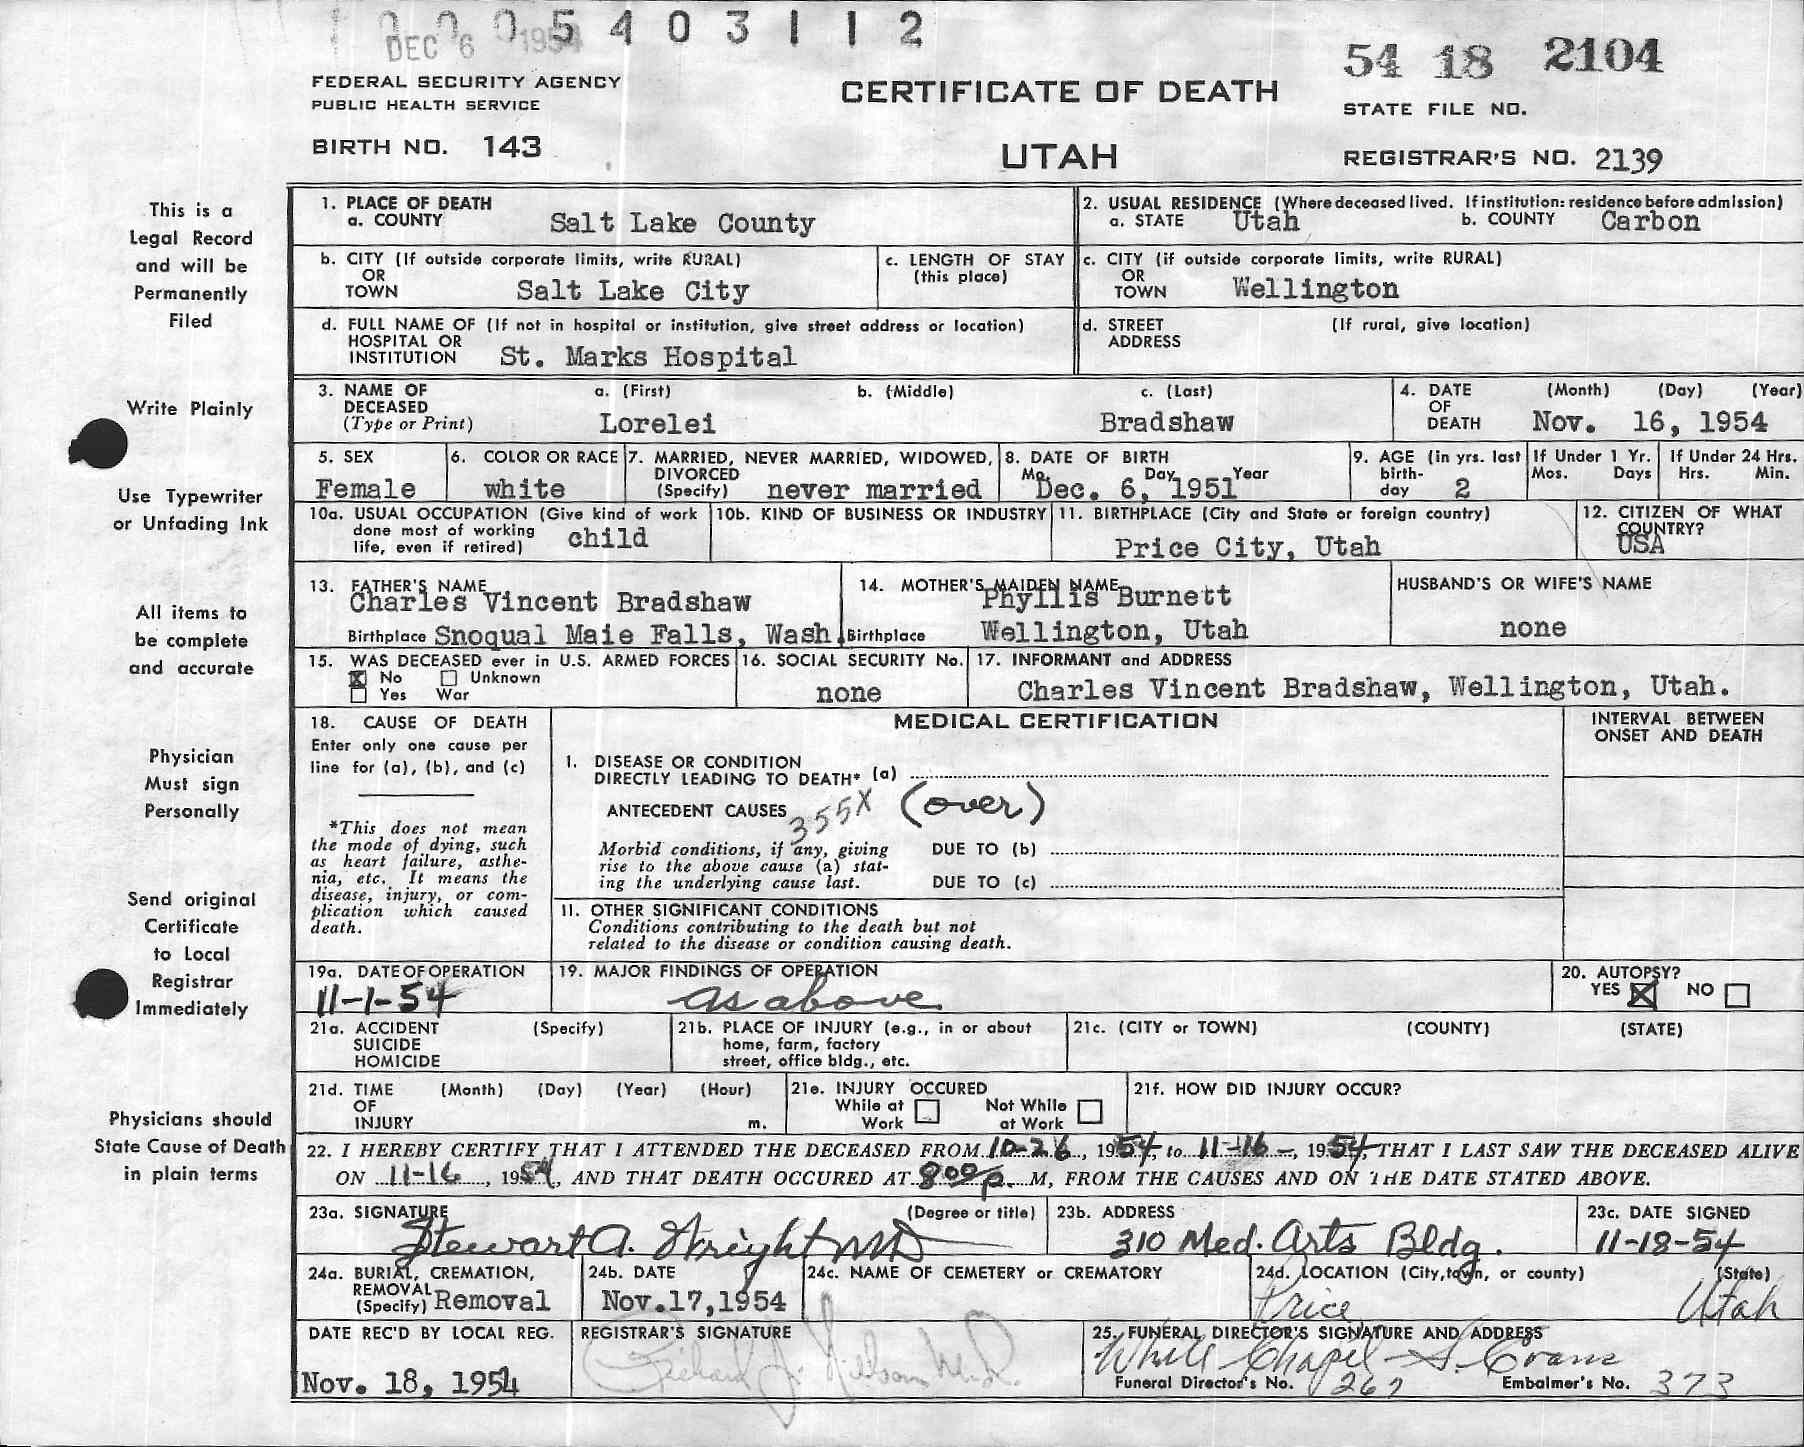 1 0 0 0 5 4 0 3 1 1 2
DEC 6 1954
54 18 2104
FEDERAL SECURITY AGENCY
PUBLIC HEALTH SERVICE
CERTIFICATE OF DEATH
STATE FILE NO.
BIRTH NO. 143
UTAH
REGISTRAR'S NO. 2139
This is a
Legal Record
and will be
Permanently
Filed
Write Plainly
Use Typewriter
or Unfading Ink
All items to
be complete
and accurate
Physician
Must sign
Personally
Send original
Certificate
to Local
Registrar
Immediately
Physicians should
State Cause of Death
in plain terms
1. PLACE OF DEATH
a. COUNTY Salt Lake County
2. USUAL RESIDENCE (Where deceased lived. If institution: residence before admission)
a. STATE Utah b. COUNTY Carbon
b. CITY (If outside corporate limits, write RURAL)
OR
TOWN Salt Lake City
c. LENGTH OF STAY
(this place)
c. CITY (if outside corporate limits, write RURAL)
OR
TOWN Wellington
d. FULL NAME OF (If not in hospital or institution, give street address or location)
HOSPITAL OR
INSTITUTION St. Marks Hospital
d. STREET (If rural, give location)
ADDRESS
3. NAME OF a. (First) b. (Middle) c. (Last)
DECEASED
(Type or Print) Lorelei Bradshaw
4. DATE (Month) (Day) (Year)
OF
DEATH Nov. 16, 1954
5. SEX
Female
6. COLOR OR RACE
white
7. MARRIED, NEVER MARRIED, WIDOWED,
DIVORCED
(Specify) never married
8. DATE OF BIRTH
Mo. Day Year
Dec. 6, 1951
9. AGE (in yrs. last
birth-
day 2
If Under 1 Yr.
Mos. Days
If Under 24 Hrs.
Hrs. Min.
10a. USUAL OCCUPATION (Give kind of work
done most of working
life, even if retired) child
10b. KIND OF BUSINESS OR INDUSTRY
11. BIRTHPLACE (City and State or foreign country)
Price City, Utah
12. CITIZEN OF WHAT
COUNTRY?
USA
13. FATHER'S NAME
Charles Vincent Bradshaw
Birthplace Snoqual Maie Falls, Wash.
14. MOTHER'S MAIDEN NAME
Phyllis Burnett
Birthplace Wellington, Utah
HUSBAND'S OR WIFE'S NAME
none
15. WAS DECEASED ever in U.S. ARMED FORCES
X No Unknown
Yes War
16. SOCIAL SECURITY No.
none
17. INFORMANT and ADDRESS
Charles Vincent Bradshaw, Wellington, Utah.
18. CAUSE OF DEATH
Enter only one cause per
line for (a), (b), and (c)
*This does not mean
the mode of dying, such
as heart failure, asthe-
nia, etc. It means the
disease, injury, or com-
plication which caused
death.
MEDICAL CERTIFICATION
INTERVAL BETWEEN
ONSET AND DEATH
1. DISEASE OR CONDITION
DIRECTLY LEADING TO DEATH* (a)
ANTECEDENT CAUSES 355X (over)
Morbid conditions, if any, giving DUE TO (b)
rise to the above cause (a) stat-
ing the underlying cause last. DUE TO (c)
11. OTHER SIGNIFICANT CONDITIONS
Conditions contributing to the death but not
related to the disease or condition causing death.
19a. DATE OF OPERATION
11-1-54
19. MAJOR FINDINGS OF OPERATION
as above
20. AUTOPSY?
YES X NO
21a. ACCIDENT (Specify)
SUICIDE
HOMICIDE
21b. PLACE OF INJURY (e.g., in or about
home, farm, factory
street, office bldg., etc.
21c. (CITY or TOWN) (COUNTY) (STATE)
21d. TIME (Month) (Day) (Year) (Hour)
OF
INJURY m.
21e. INJURY OCCURED
While at Not While
Work at Work
21f. HOW DID INJURY OCCUR?
22. I HEREBY CERTIFY THAT I ATTENDED THE DECEASED FROM 10-26, 1954, to 11-16-, 1954, THAT I LAST SAW THE DECEASED ALIVE
ON 11-16, 1954, AND THAT DEATH OCCURED AT 8:00 p. M, FROM THE CAUSES AND ON THE DATE STATED ABOVE.
23a. SIGNATURE (Degree or title)
Stewart A. Wright MD
23b. ADDRESS
310 Med. Arts Bldg.
23c. DATE SIGNED
11-18-54
24a. BURIAL, CREMATION,
REMOVAL
(Specify) Removal
24b. DATE
Nov.17,1954
24c. NAME OF CEMETERY or CREMATORY
24d. LOCATION (City, town, or county) (State)
Price Utah
DATE REC'D BY LOCAL REG.
Nov. 18, 1954
REGISTRAR'S SIGNATURE
25. FUNERAL DIRECTOR'S SIGNATURE AND ADDRESS
Chapel - S. Evans
Funeral Director's No. 267 Embalmer's No. 373